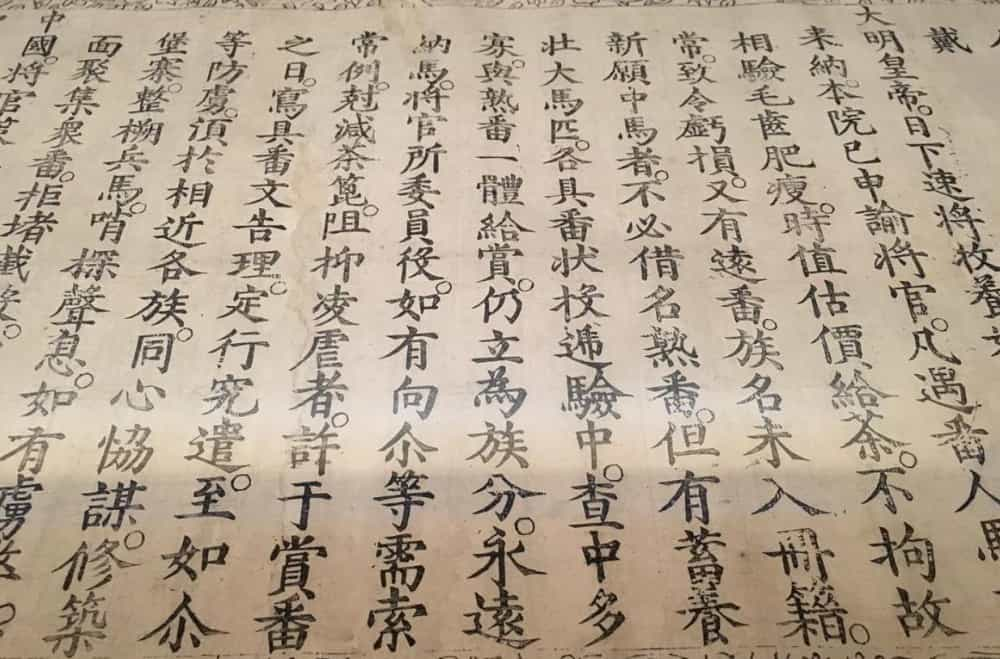 戴
大明皇帝。日下速將牧養
来納。本院已申諭將官。凡遇番人
相驗毛齒肥瘦。時值估價給茶。不拘故
常。致令虧損。又有遠番。族名未入冊籍。
新願中馬者。不必借名熟番。但有蓄養
壯大馬匹。各具番狀投遞驗中。查中多
寡與熟番一體給賞。仍立為族分。永遠
納馬。將官所委員役。如有向尒等需索
常例。尅減茶篦。阻抑凌虐者。許于賞番
之日。寫具番文告理。定行究遣。至如尒
等防虜。湏於相近各族。同心恊謀。修築
堡寨。整搠兵馬。哨探聲息。如有虜
面聚集衆番。拒堵截殺。
中國。將官